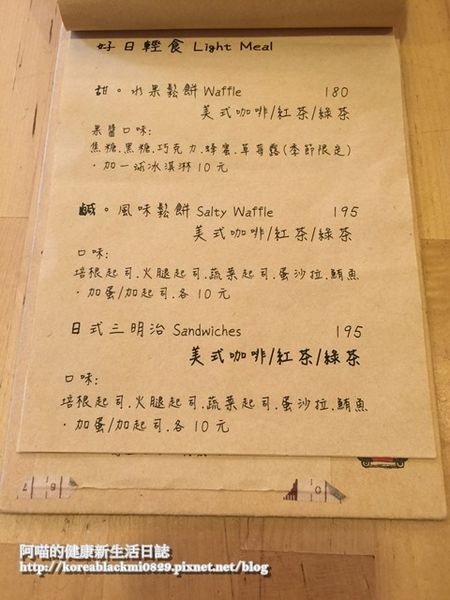 好日輕食 Light Meal
甜。水果鬆餅 Waffle 180
美式咖啡/紅茶/綠茶
果醬口味:
焦糖.黑糖.巧克力.蜂蜜.草莓露(季節限定)
·加一球冰淇淋10元
鹹。風味鬆餅 Salty Waffle 195
美式咖啡/紅茶/綠茶
口味:
培根起司.火腿起司.蔬菜起司.蛋沙拉.鮪魚
·加蛋/加起司.各10元
日式三明治 Sandwiches 195
美式咖啡/紅茶/綠茶
口味:
培根起司.火腿起司.蔬菜起司.蛋沙拉.鮪魚
·加蛋/加起司.各10元
阿喵的健康新生活日誌
http://koreablackmi0829.pixnet.net/blog